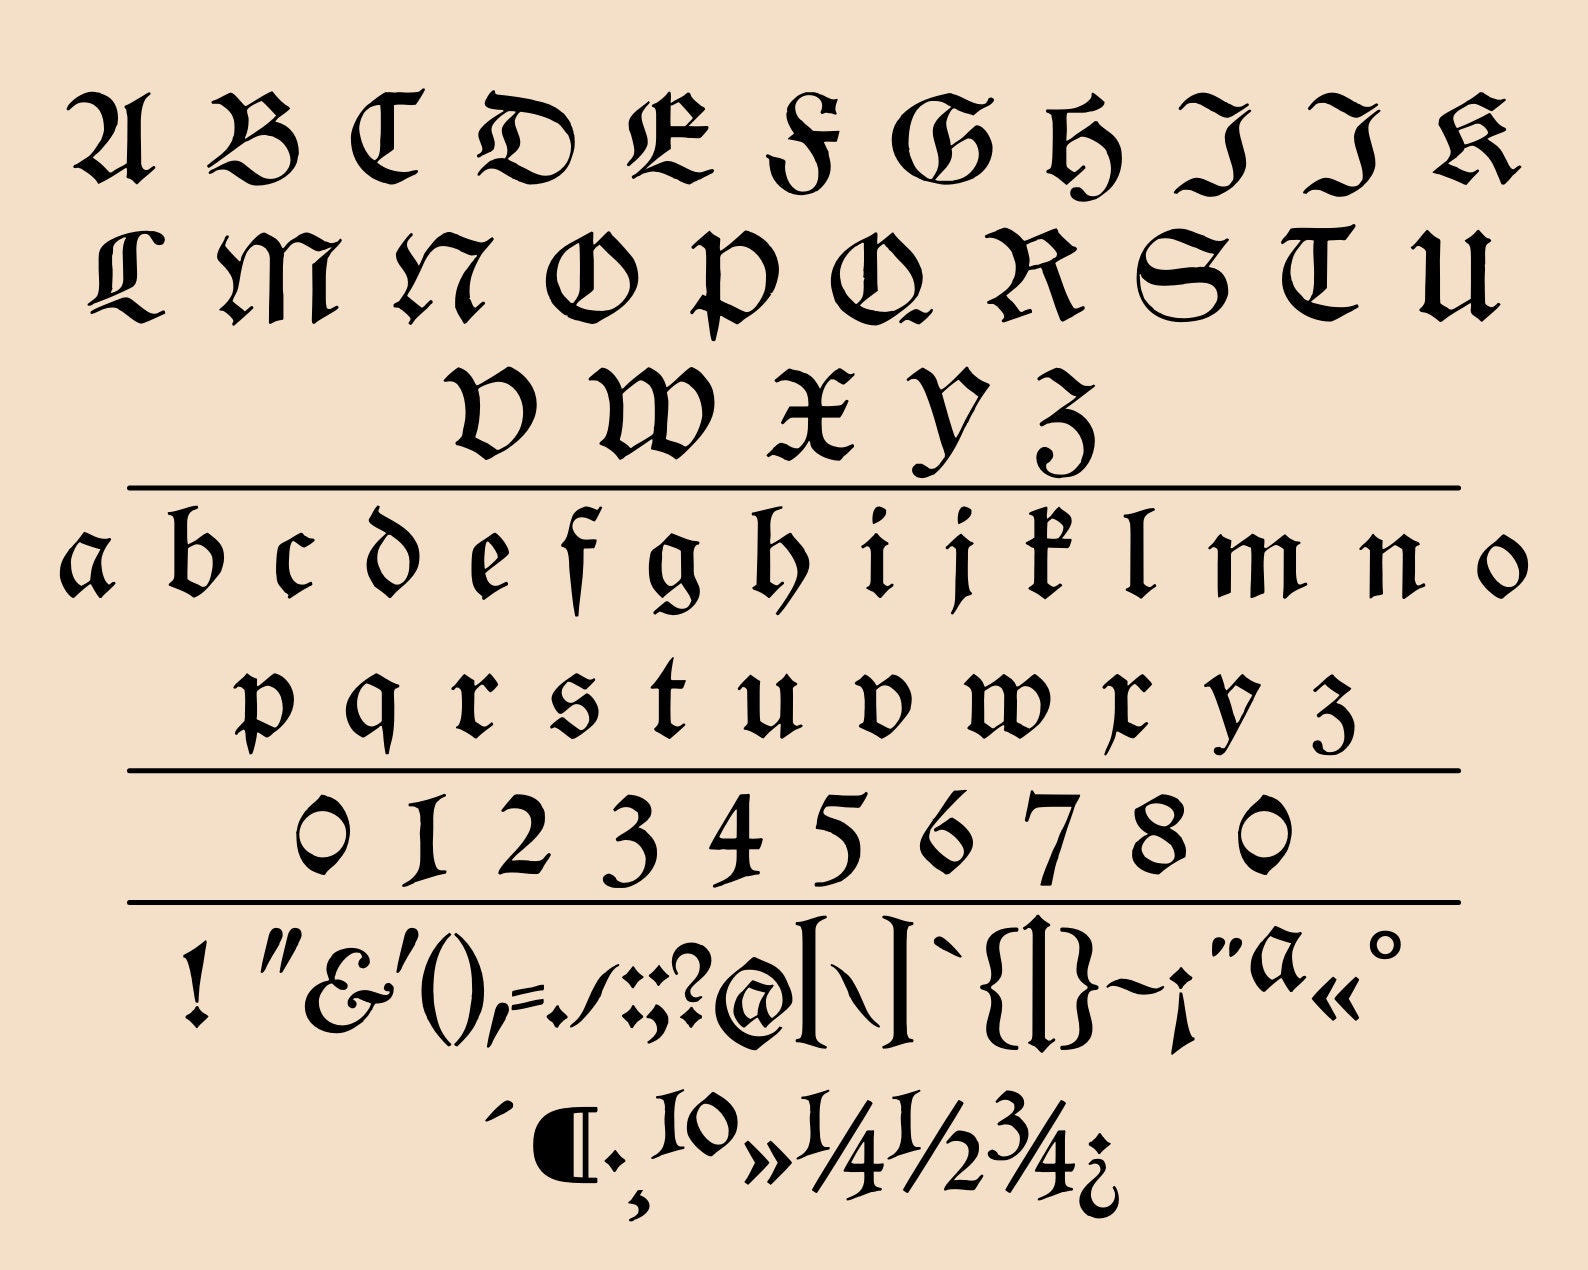 A B C D E F G H I J K
L M N O P Q R S T U
V W X Y Z
a b c d e f g h i j k l m n o
p q r s t u v w x y z
0 1 2 3 4 5 6 7 8 0
! "&'(),=./:;?@[\]`{|}~¡¨ª«°
´¶·¸¹º»¼½¾¿